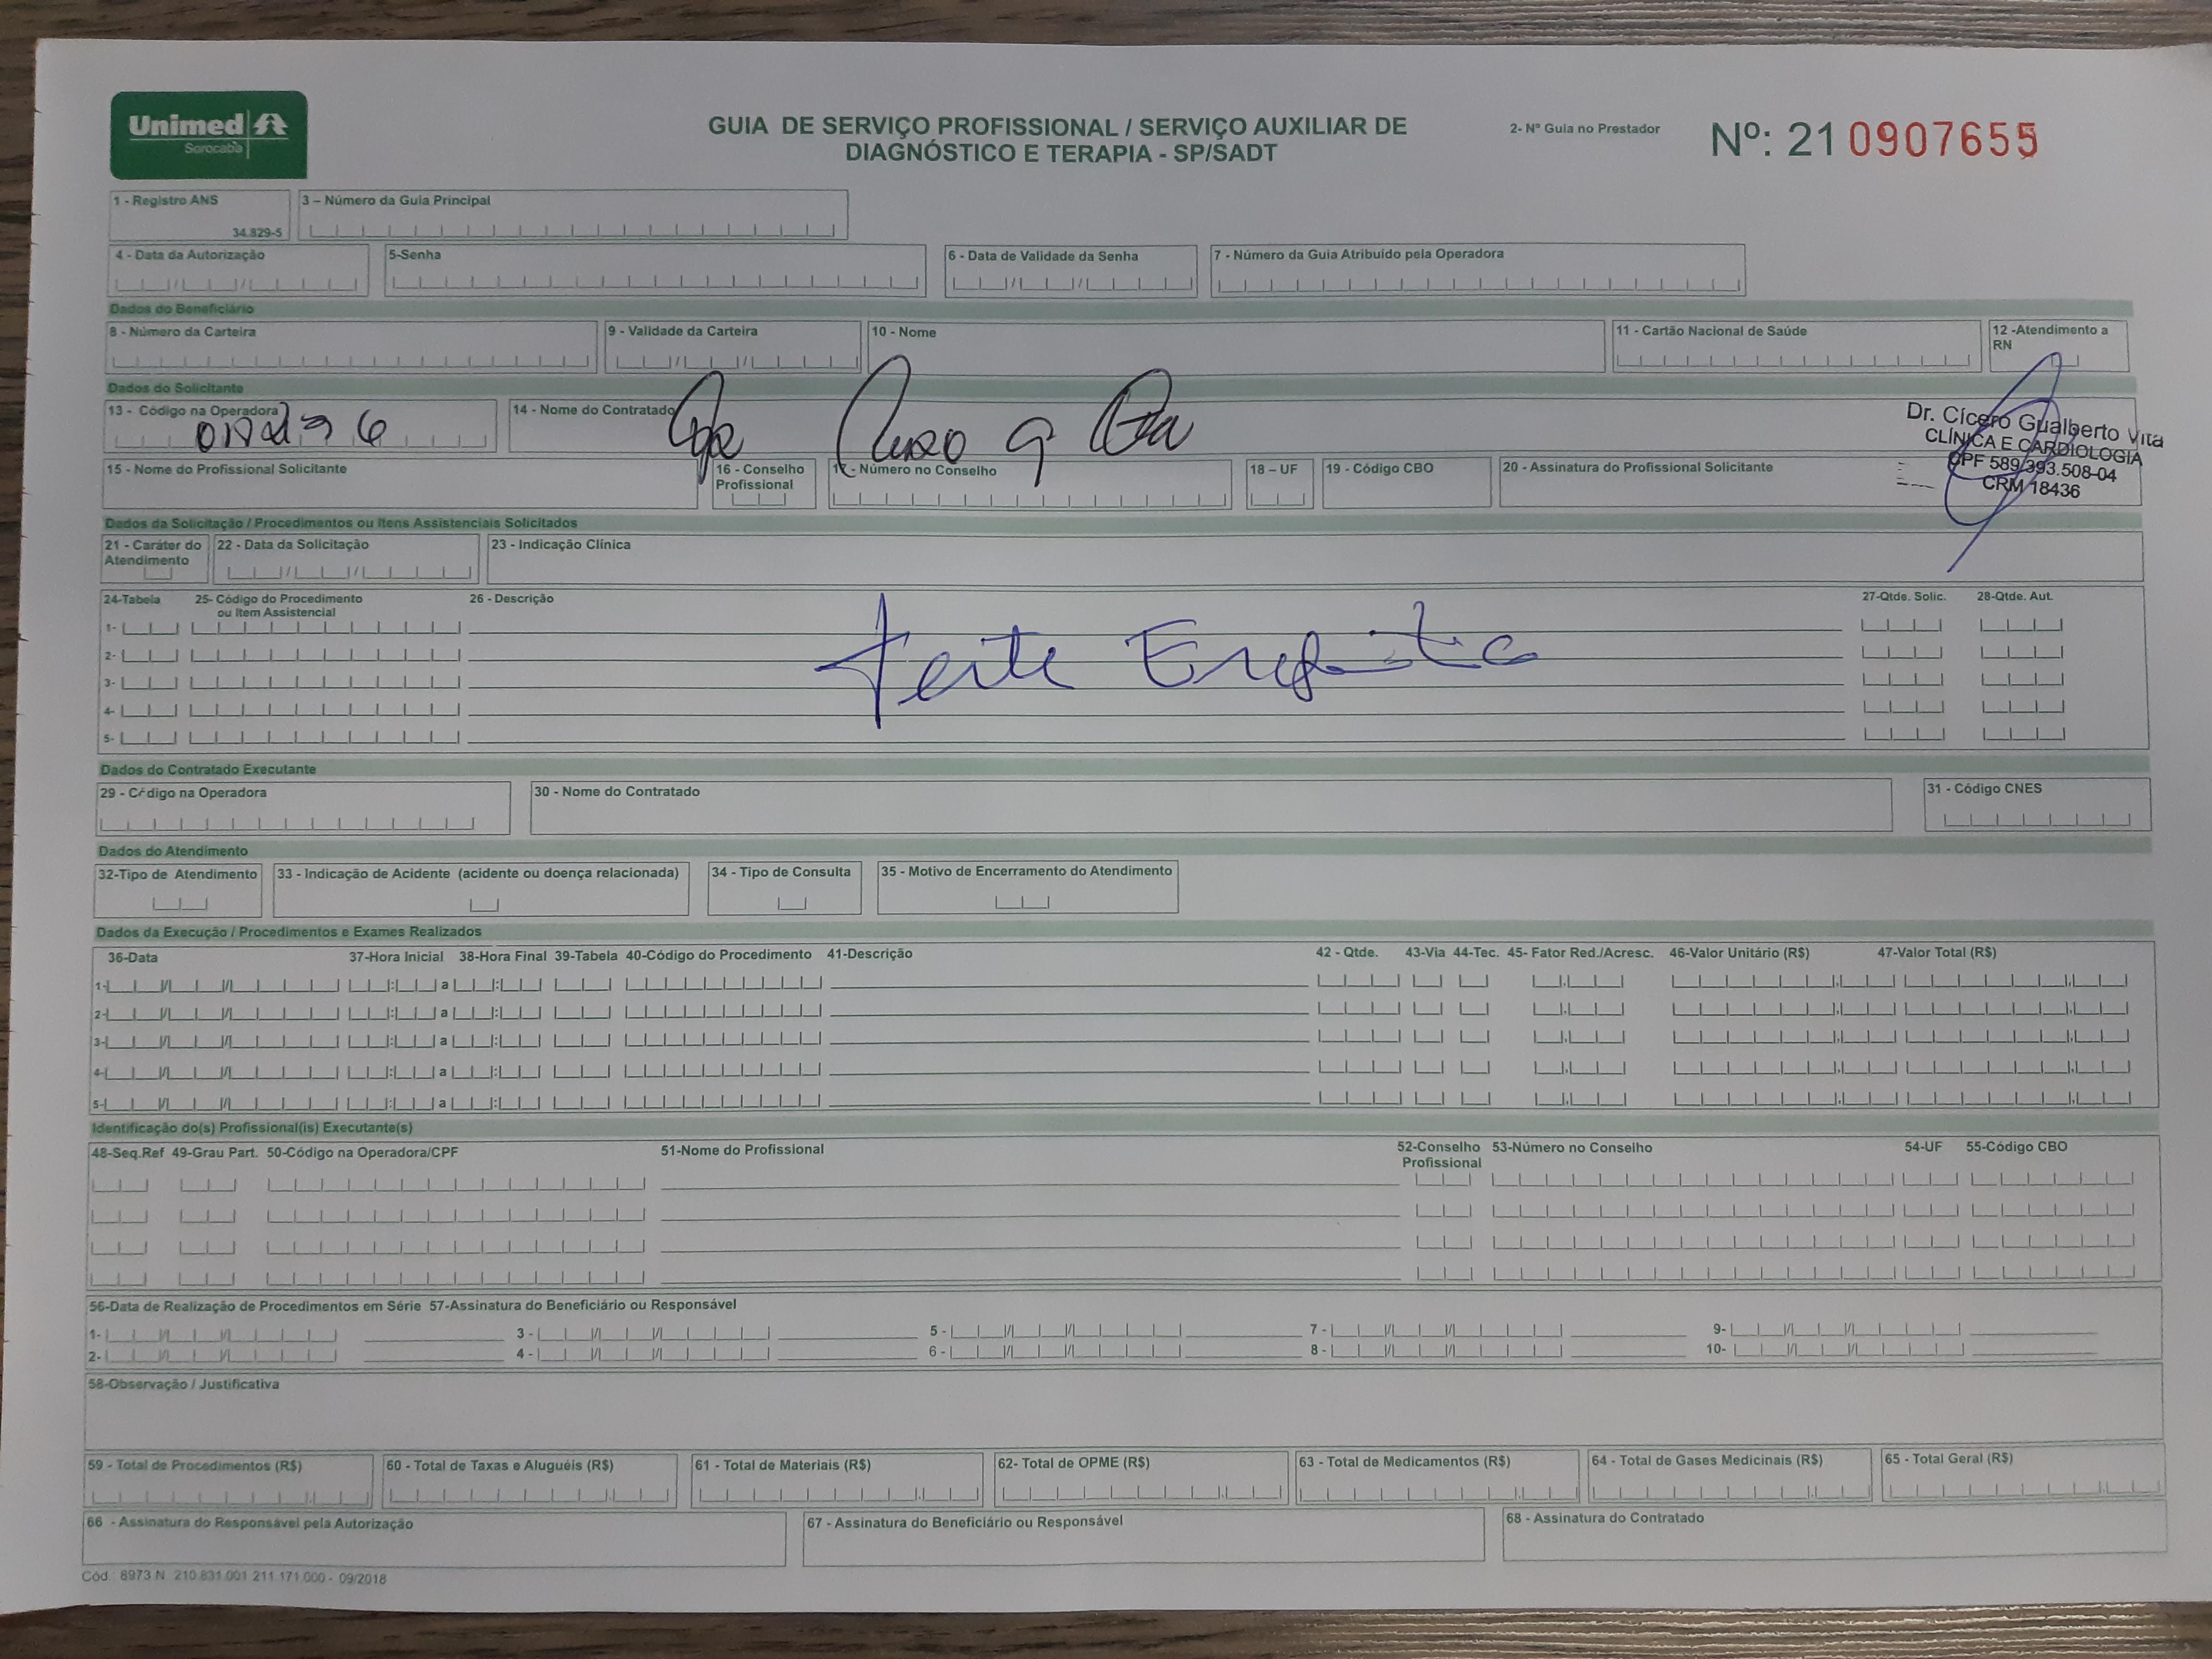 Unimed
Sorocaba
GUIA DE SERVIÇO PROFISSIONAL / SERVIÇO AUXILIAR DE
DIAGNÓSTICO E TERAPIA - SP/SADT
2- Nº Guia no Prestador
Nº: 21 09076555
1 - Registro ANS
34.829-5
3 – Número da Guia Principal
4 - Data da Autorização
5-Senha
6 - Data de Validade da Senha
7 - Número da Guia Atribuído pela Operadora
Dados do Beneficiário
8 - Número da Carteira
9 - Validade da Carteira
10 - Nome
11 - Cartão Nacional de Saúde
12 -Atendimento a
RN
Dados do Solicitante
13 - Código na Operadora
14 - Nome do Contratado
Dr. Cícero Gualberto Vita
CLÍNICA E CARDIOLOGIA
CPF 589.393.508-04
CRM 18436
15 - Nome do Profissional Solicitante
16 - Conselho
Profissional
17 - Número no Conselho
18 – UF
19 - Código CBO
20 - Assinatura do Profissional Solicitante
Dados da Solicitação / Procedimentos ou Itens Assistenciais Solicitados
21 - Caráter do
Atendimento
22 - Data da Solicitação
23 - Indicação Clínica
24-Tabela
25- Código do Procedimento
ou Item Assistencial
26 - Descrição
27-Qtde. Solic.
28-Qtde. Aut.
1-
2-
3-
4-
5-
Teste Ergométrico
Dados do Contratado Executante
29 - Código na Operadora
30 - Nome do Contratado
31 - Código CNES
Dados do Atendimento
32-Tipo de Atendimento
33 - Indicação de Acidente (acidente ou doença relacionada)
34 - Tipo de Consulta
35 - Motivo de Encerramento do Atendimento
Dados da Execução / Procedimentos e Exames Realizados
36-Data 37-Hora Inicial 38-Hora Final 39-Tabela 40-Código do Procedimento 41-Descrição 42 - Qtde. 43-Via 44-Tec. 45- Fator Red./Acresc. 46-Valor Unitário (R$) 47-Valor Total (R$)
1- a
2- a
3- a
4- a
5- a
Identificação do(s) Profissional(is) Executante(s)
48-Seq.Ref 49-Grau Part. 50-Código na Operadora/CPF 51-Nome do Profissional 52-Conselho
Profissional
53-Número no Conselho 54-UF 55-Código CBO
56-Data de Realização de Procedimentos em Série 57-Assinatura do Beneficiário ou Responsável
1- 3 - 5 - 7 - 9-
2- 4 - 6 - 8 - 10-
58-Observação / Justificativa
59 - Total de Procedimentos (R$)
60 - Total de Taxas e Aluguéis (R$)
61 - Total de Materiais (R$)
62- Total de OPME (R$)
63 - Total de Medicamentos (R$)
64 - Total de Gases Medicinais (R$)
65 - Total Geral (R$)
66 - Assinatura do Responsável pela Autorização
67 - Assinatura do Beneficiário ou Responsável
68 - Assinatura do Contratado
Cód. 8973 N 210 831 001 211 171 000 - 09/2018